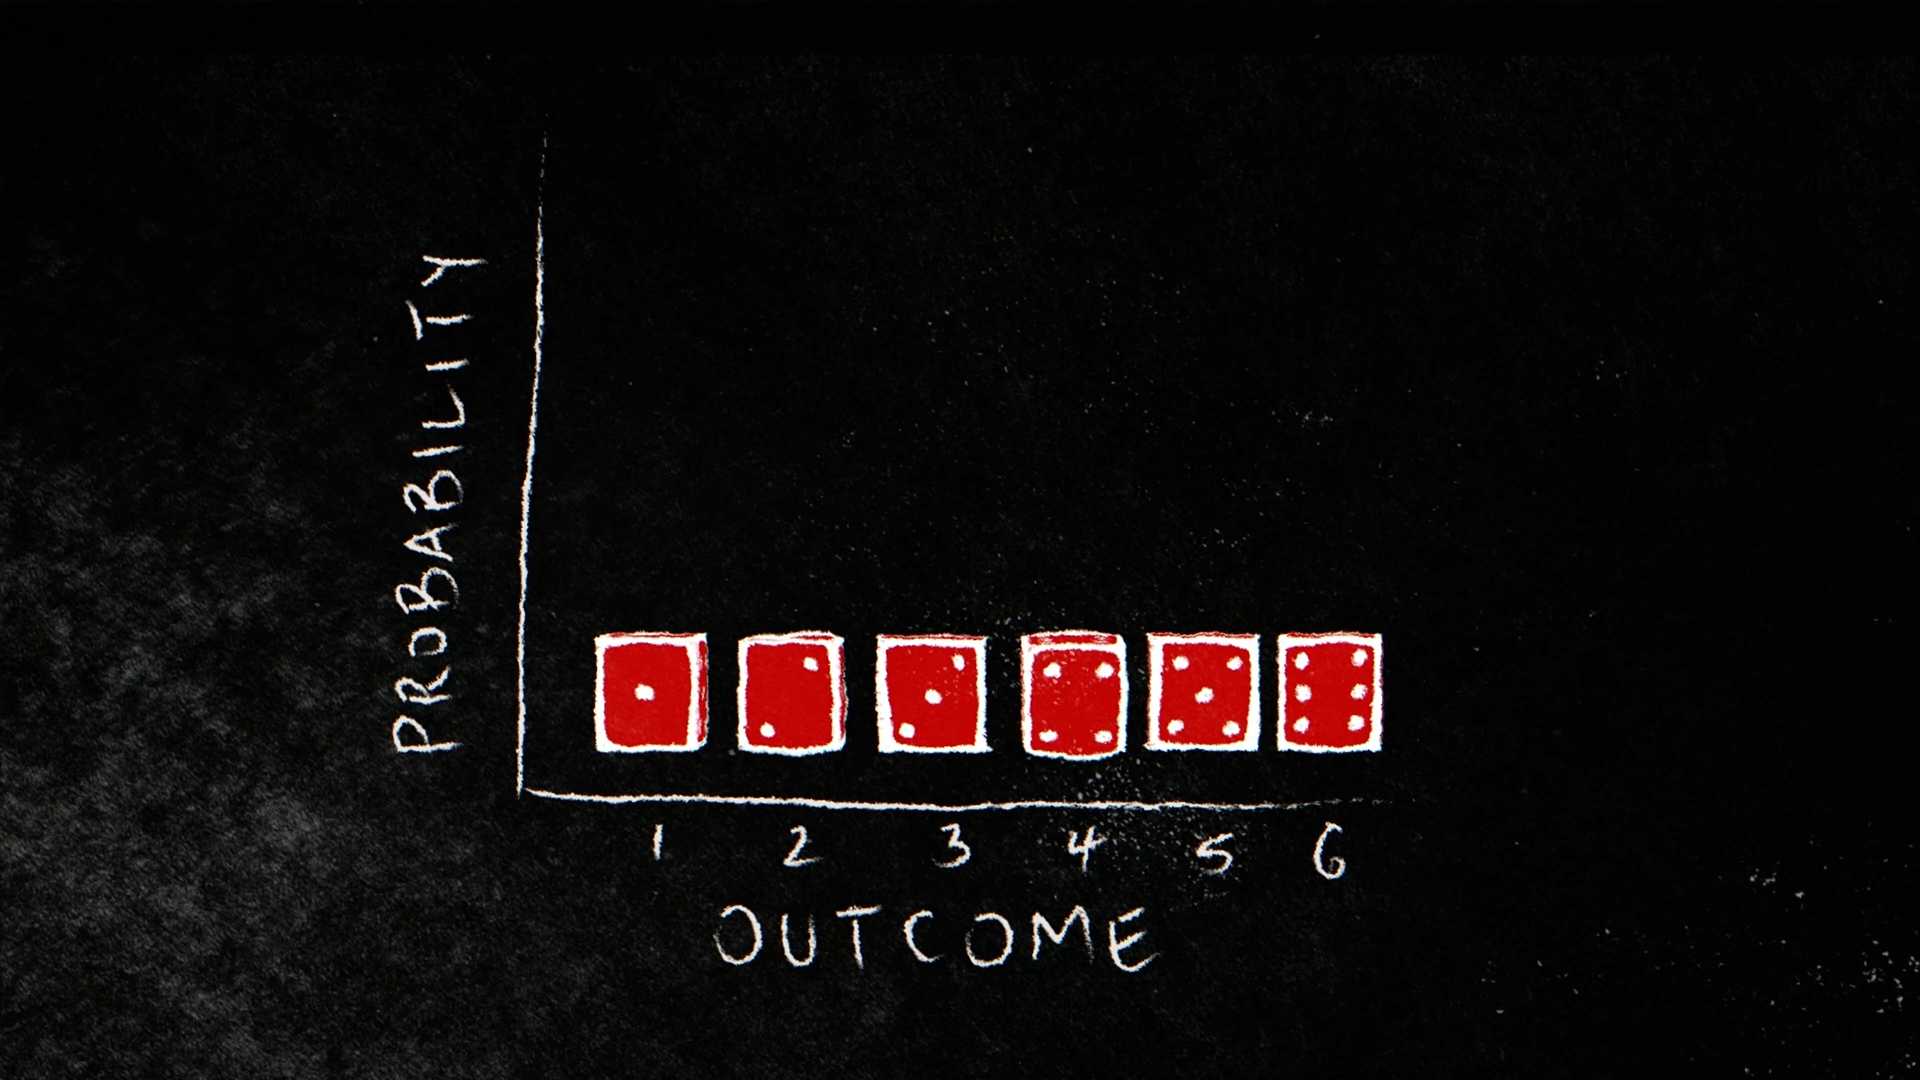 PROBABILITY
1 2 3 4 5 6
OUTCOME